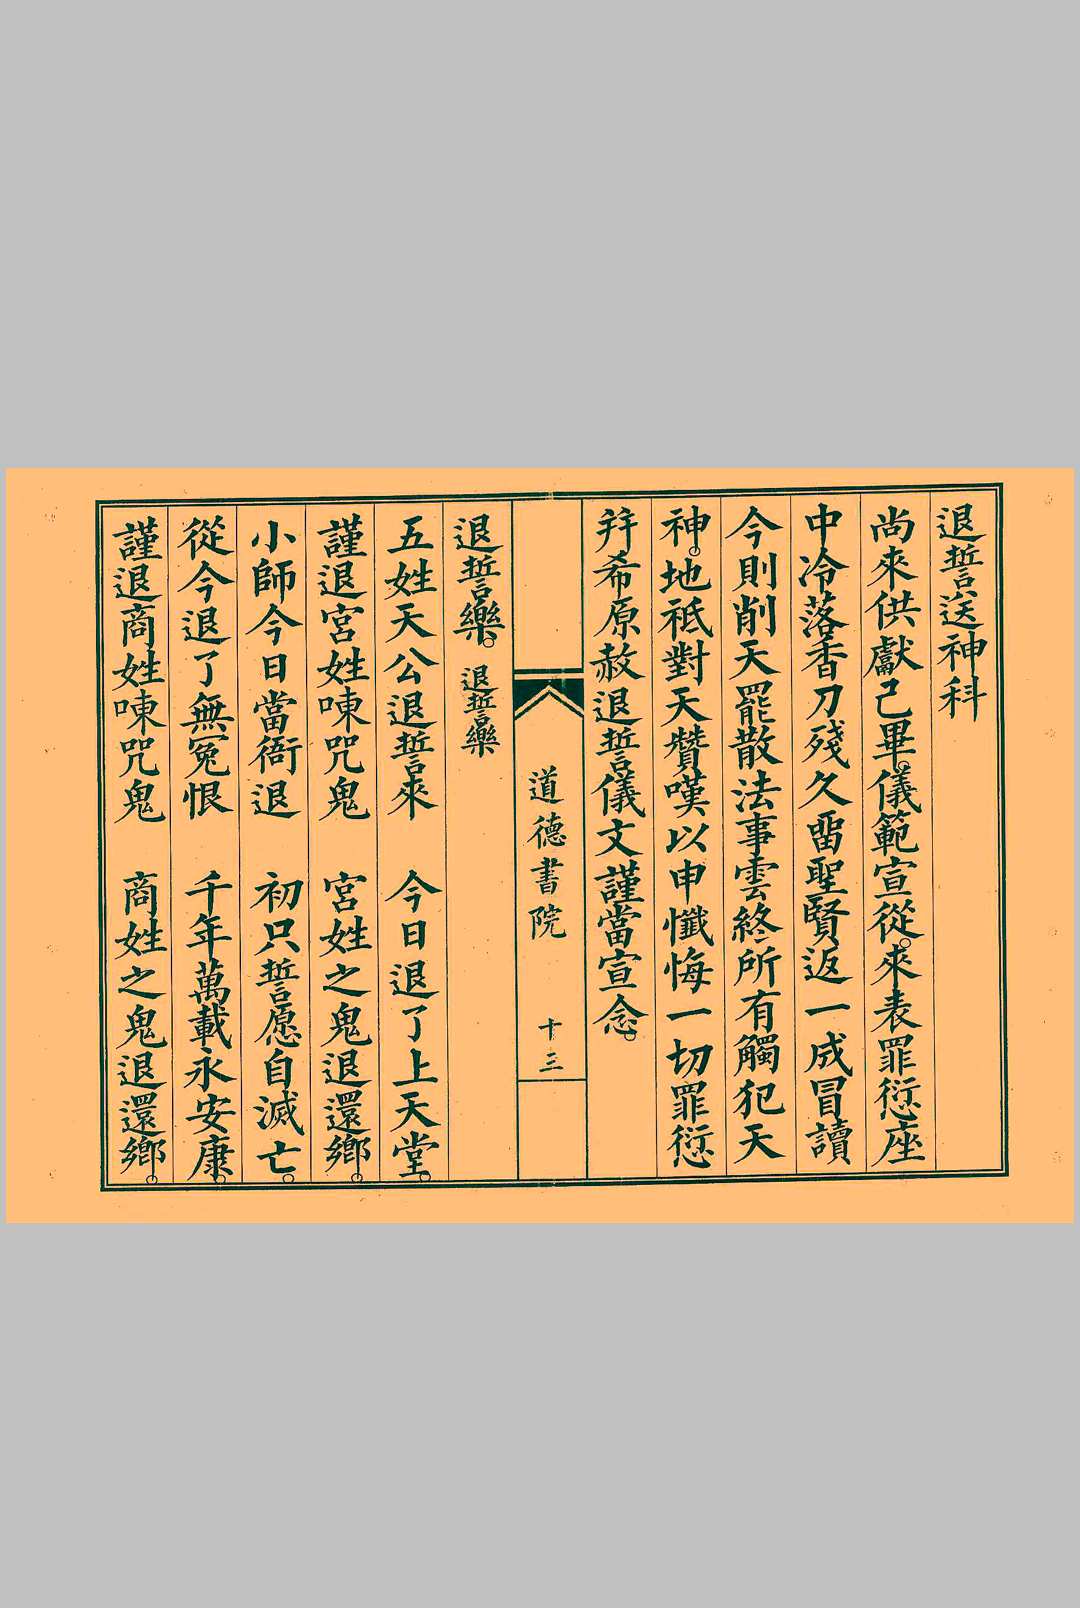 退誓送神科
尚來供獻已畢。儀範宣從。來表罪愆座
中冷落香刀殘久畱聖賢返一成冒讀
今則削天罷散法事雲終所有觸犯天
神。地祇對天贊嘆以申懺悔一切罪愆
并希原赦退誓儀文謹當宣念。
道德書院 十三
退誓樂。 退誓樂
五姓天公退誓來 今日退了上天堂。
謹退宮姓㖦咒鬼 宮姓之鬼退還鄉。
小師今日當衙退 初只誓愿自滅亡。
從今退了無冤恨 千年萬載永安康。
謹退商姓㖦咒鬼 商姓之鬼退還鄉。